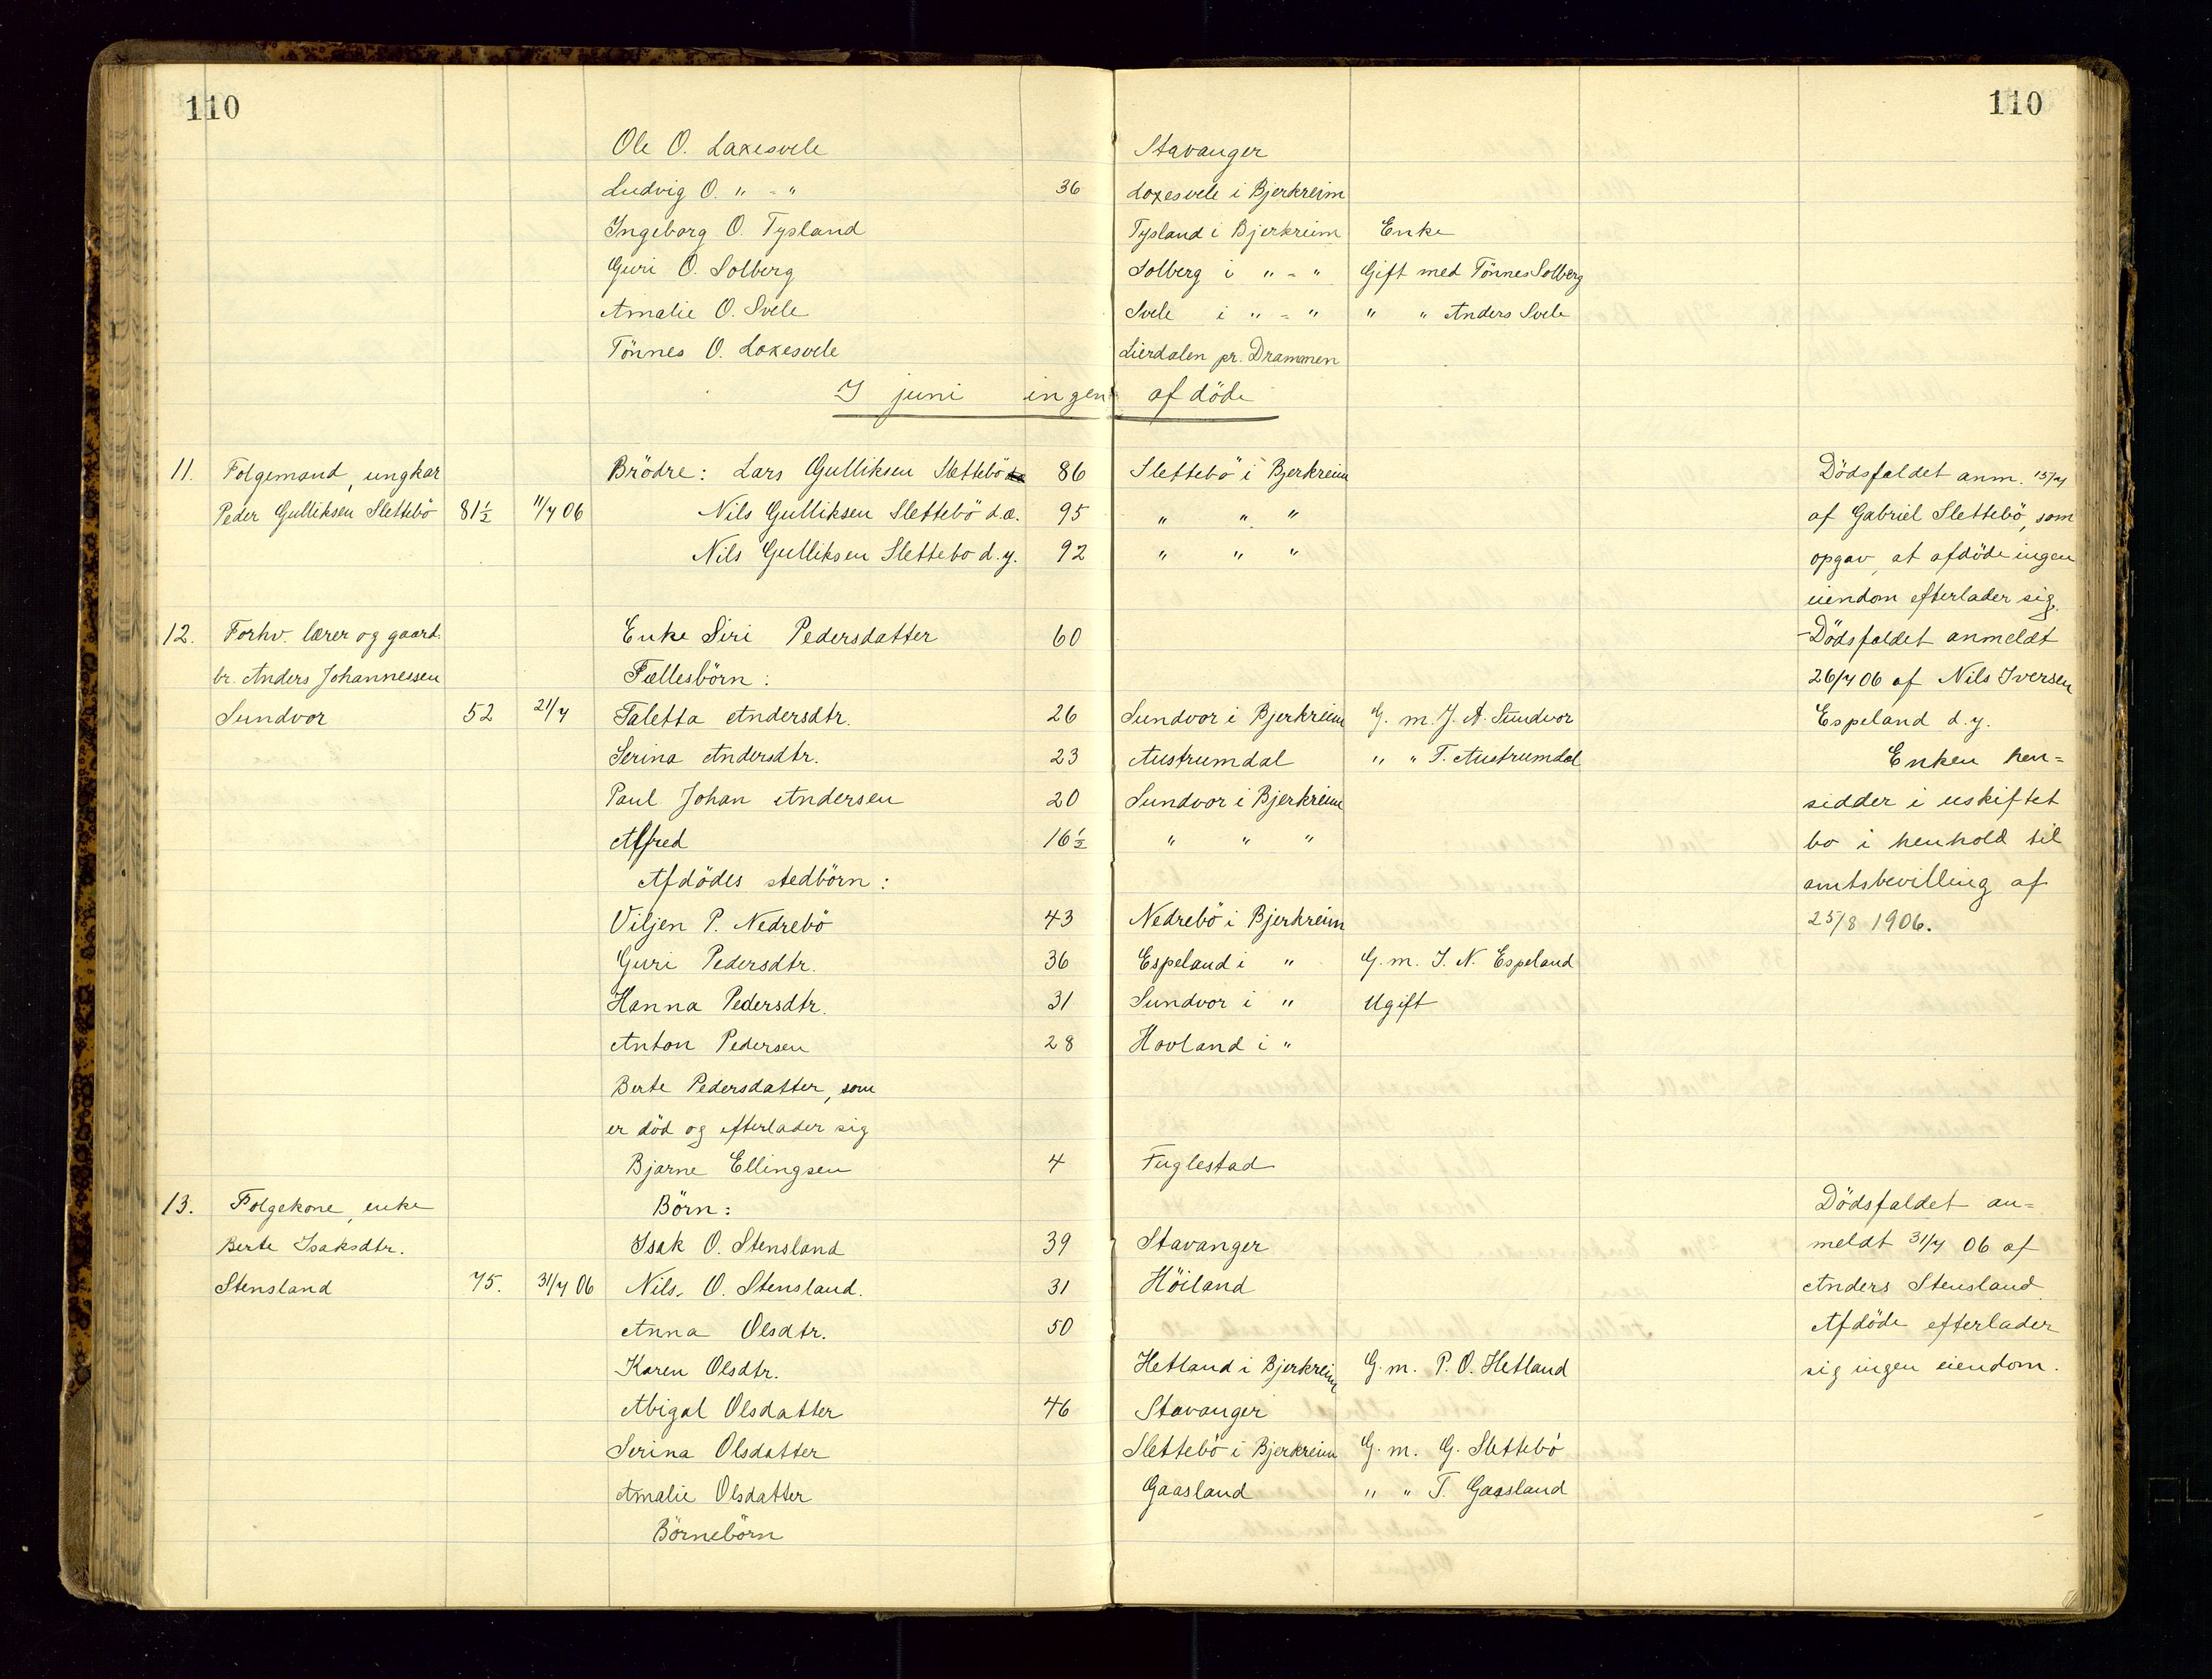 110 110
Ole O. Laxesvele Stavanger
Ludvig O. " - " 36 Laxesvele i Bjerkreim
Ingeborg O. Tysland Tysland i Bjerkreim Enke
Guri O. Solberg Solberg i " - " Gift med Tönnes Solberg
Amalie O. Svele Svele i " - " " " Anders Svele
Tönnes O. Laxesvele Lierdalen pr. Drammen
I juni ingen afdöde
11. Folgemand, ungkar Brödre: Lars Gulliksen Slettebö 86 Slettebö i Bjerkreim Dödsfaldet anm. 15/7
Peder Gulliksen Slettebö 81½ 11/7 06 Nils Gulliksen Slettebö d.æ. 95 " " " af Gabriel Slettebö, som
Nils Gulliksen Slettebö d.y. 92 " " " opgav, at afdöde ingen
eiendom efterlader sig.
12. Forhv. lærer og gaard- Enke Siri Pedersdatter 60 Dödsfaldet anmeldt
br. Anders Johannessen Fællesbörn: 26/7 06 af Nils Iversen
Sundvor 52 21/7 Taletta Andersdtr. 26 Sundvor i Bjerkreim G. m. J. A. Sundvor Espeland d.y.
Serina Andersdtr. 23 Austrumdal " " T. Austrumdal Enken hen=
Paul Johan Andersen 20 Sundvor i Bjerkreim sidder i uskiftet
Alfred 16½ " " " bo i henhold til
Afdödes stedbörn: amtsbevilling af
Viljen P. Nedrebö 43 Nedrebö i Bjerkreim 25/8 1906.
Guri Pedersdtr. 36 Espeland i " G. m. I. N. Espeland
Hanna Pedersdtr. 31 Sundvor i " Ugift
Anton Pedersen 28 Hovland i "
Berte Pedersdatter, som
er död og efterlader sig
Bjarne Ellingsen 4 Fuglestad
13. Folgekone, enke Börn: Dödsfaldet an=
Berte Isaksdtr. Isak O. Stensland 39 Stavanger meldt 31/7 06 af
Stensland 75. 31/7 06 Nils O. Stensland. 31 Höiland Anders Stensland.
Anna Olsdtr. 50 Afdöde efterlader
Karen Olsdtr. Hetland i Bjerkreim G. m. P. O. Hetland sig ingen eiendom.
Abigal Olsdatter 46 Stavanger
Serina Olsdatter Slettebö i Bjerkreim G. m. G. Slettebö
Amalie Olsdatter Gaasland " " T. Gaasland
Börnebörn